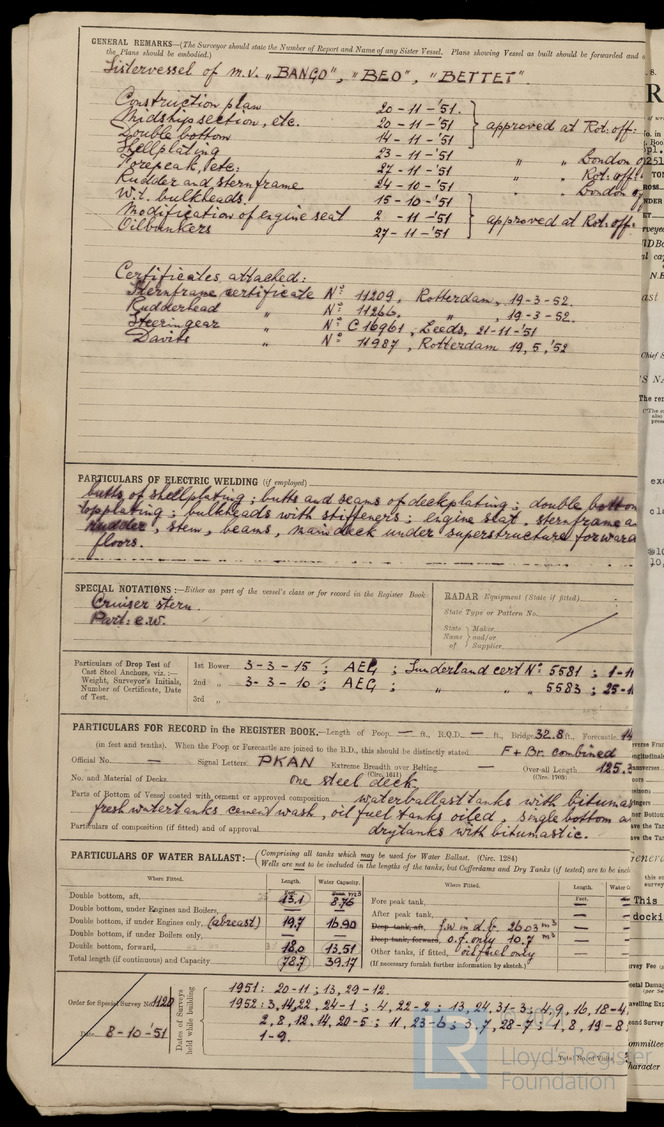 GENERAL REMARKS—(The Surveyor should state the Number of Report and Name of any Sister Vessel. Plans showing Vessel as built should be forwarded and
the Plans should be embodied.)
Sistervessel of m.v. "BANGO", "BEO", "BETTET".
Construction plan 20-11-'51.
Midshipsection, etc. 20-11-'51 approved at Rot: off:
Double bottom 14-11-'51
Shellplating 23-11-'51 " " London
Forepeak, etc. 27-11-'51 " " Rot: off:
Rudder and sternframe 24-10-'51 " " London
W.t. bulkheads 15-10-'51
Modification of engine seat 2-11-'51 approved at Rot: off:
Oilbunkers 27-11-'51
Certificates attached:
Sternframe certificate No: 11209, Rotterdam, 19-3-52.
Rudderhead " No: 11266, " , 19-3-52.
Steeringear " No: C 16961, Leeds, 21-11-'51
Davits " No: 11987, Rotterdam 19,5,'52
PARTICULARS OF ELECTRIC WELDING (if employed)
butts of shellplating; butts and seams of deckplating; double bottom
topplating; bulkheads with stiffeners; engine seat, sternframe
rudder, stem, beams, maindeck under superstructure forward
floors.
SPECIAL NOTATIONS:—Either as part of the vessel's class or for record in the Register Book
Cruiser stern.
Part: e.w.
RADAR Equipment (State if fitted)
State Type or Pattern No.
State Name of Maker and/or Supplier
Particulars of Drop Test of Cast Steel Anchors, viz.:— Weight, Surveyor's Initials, Number of Certificate, Date of Test.
1st Bower 3-3-15; AEG; Sunderland cert No: 5581;
2nd " 3-3-10; AEG; " " 5583;
3rd "
PARTICULARS FOR RECORD in the REGISTER BOOK.—Length of Poop — ft., R.Q.D. — ft., Bridge 32.8 ft., Forecastle
(in feet and tenths). When the Poop or Forecastle are joined to the B.D., this should be distinctly stated F + Br. combined
Official No. — Signal Letters PKAN Extreme Breadth over Belting (Circ. 1611) — Over-all Length (Circ. 1703) 125.
No. and Material of Decks one steel deck
Parts of Bottom of Vessel coated with cement or approved composition waterballasttanks with
freshwatertanks cementwash, oil fuel tanks oiled, single bottom
Particulars of composition (if fitted) and of approval drytanks with bitumastic.
PARTICULARS OF WATER BALLAST:—(Comprising all tanks which may be used for Water Ballast. (Circ. 1284)
Wells are not to be included in the lengths of the tanks, but Cofferdams and Dry Tanks (if tested) are to be
Where Fitted. Length. Water Capacity. Where Fitted. Length.
Double bottom, aft, 13.1 8.76 Fore peak tank, —
Double bottom, under Engines and Boilers, — — After peak tank, —
Double bottom, if under Engines only, (abreast) 19.7 16.90 Deep tank, aft, f.w in d.b. 26.03 m3
Double bottom, if under Boilers only, — — Deep tank, forward, o.f. only 10.7 m3
Double bottom, forward, 18.0 13.51 Other tanks, if fitted, oilfuel only
Total length (if continuous) and Capacity 78.7 39.17 (If necessary furnish further information by sketch.)
Order for Special Survey No. 1120
Date 8-10-'51
Dates of Surveys held while building
1951: 20-11; 13, 29-12.
1952: 3,14,22,24-1; 4,22-2; 13,24,31-3; 4,9,16,18-4,
2,8,12,14,20-5; 11,23-6; 3,7,28-7; 1,8,19-8;
1-9.
Total No. of Visits
LR
Lloyd's Register
Foundation